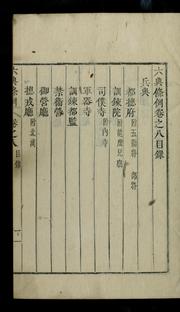 六典條例卷之八目錄
兵典
都摠府附五衛將 部將
訓鍊院附能麽兒廳
司僕寺附內寺
軍器寺
訓鍊都監
禁衛營
御營廳
摠戎廳附北漢
六典條例 卷之八 目錄 一